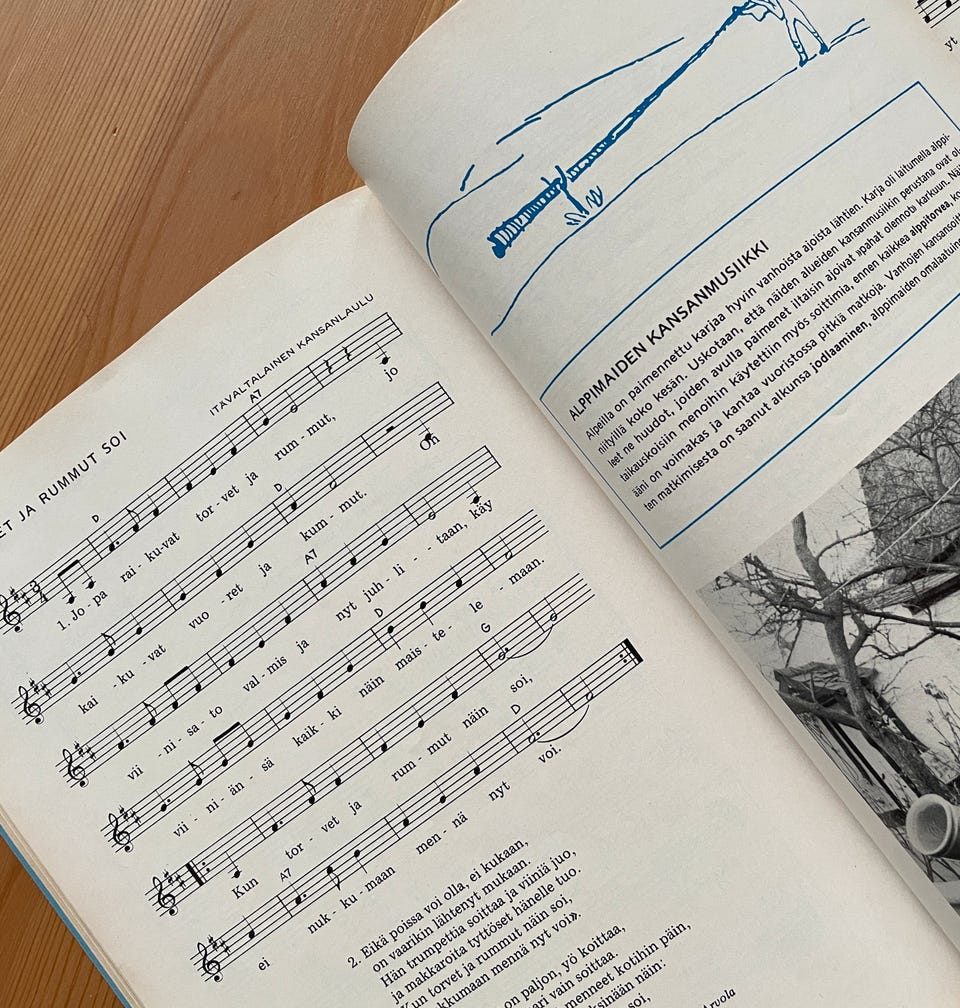 ET JA RUMMUT SOI
ITÄVALTALAINEN KANSANLAULU
D A7
1. Jo - pa rai - ku-vat tor - vet ja rum - mut, jo
D
kai - ku - vat vuo - ret ja kum - mut. On
A7
vii - ni - sa - to val - mis ja nyt juh - li - - taan, käy
D
vii - ni - än - sä kaik - ki näin mais - te - le - maan.
G
Kun tor - vet ja rum - mut näin soi,
A7 D
ei nuk - ku - maan men - nä nyt voi.
2. Eikä poissa voi olla, ei kukaan,
on vaarikin lähtenyt mukaan.
Hän trumpettia soittaa ja viiniä juo,
ja makkaroita tyttöset hänelle tuo.
Kun torvet ja rummut näin soi,
kkumaan mennä nyt voi».
on paljon, yö koittaa,
ari vain soittaa.
menneet kotihin päin,
ksinään näin:
soi,
yt
ALPPIMAIDEN KANSANMUSIIKKI
Alpeilla on paimennettu karjaa hyvin vanhoista ajoista lähtien. Karja oli laitumella alppi-
niityillä koko kesän. Uskotaan, että näiden alueiden kansanmusiikin perustana ovat ol-
leet ne huudot, joiden avulla paimenet iltaisin ajoivat »pahat olennot» karkuun.
taikauskoisiin menoihin käytettiin myös soittimia, ennen kaikkea alppitorvea,
ääni on voimakas ja kantaa vuoristossa pitkiä matkoja. Vanhojen
ten matkimisesta on saanut alkunsa jodlaaminen, alppimaiden